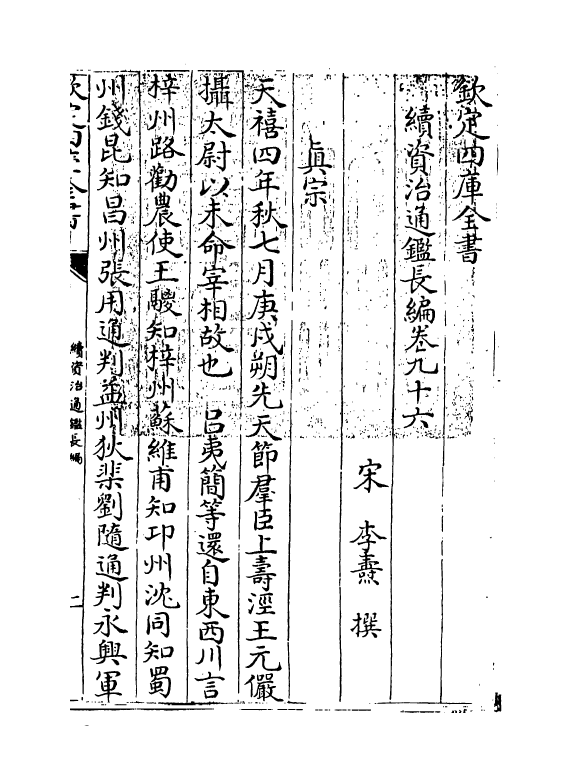 欽定四庫全書
續資治通鑑長編卷九十六
宋 李燾 撰
眞宗
天禧四年秋七月庚戌朔先天節羣臣上壽涇王元儼
攝太尉以未命宰相故也 呂夷簡等還自東西川言
梓州路勸農使王騣知梓州蘇維甫知卭州沈同知蜀
州錢昆知昌州張用通判益州狄棐劉隨通判永興軍
欽定四庫全書
續資治通鑑長編